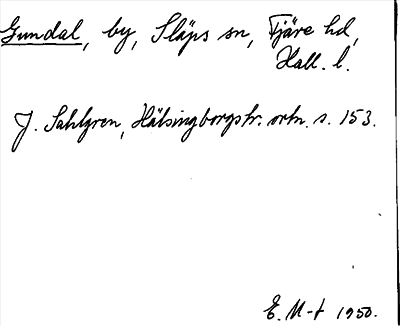 Gundal, by, Släps sn, Fjäre hd,
Hall. l.
J. Sahlgren, Hälsingborgstr. ortn. s. 153.
E. M-t 1950.